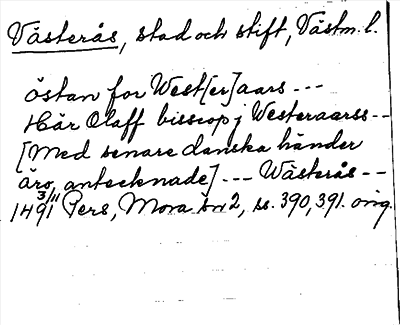 Västerås, stad och stift, Västm. l.
östan for West[er]aars ---
Här Olaff biscop j Westeraarss --
[Med senare danska händer
äro antecknade] --- Wästerås --
1491 3/11 Pers, Mora br 2, ss. 390, 391. orig.